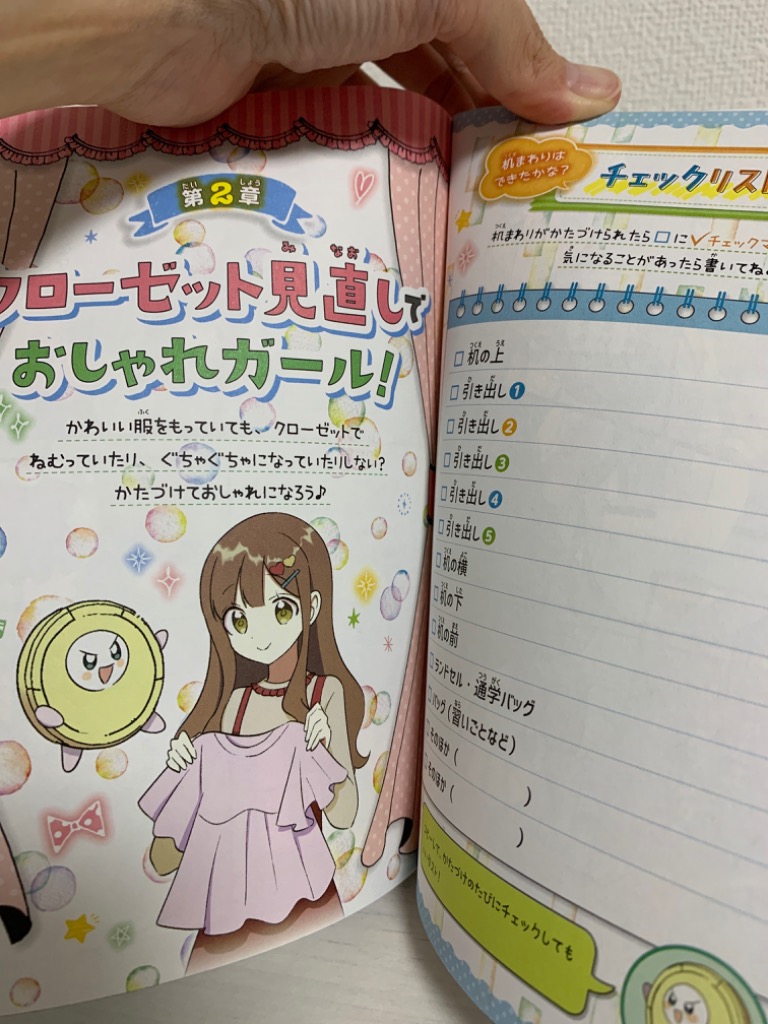 第2章
クローゼット見直しで
おしゃれガール！
かわいい服をもっていても、クローゼットで
ねむっていたり、ぐちゃぐちゃになっていたりしない？
かたづけておしゃれになろう♪
机まわりは
できたかな？
チェックリスト
机まわりがかたづけられたら□に✓チェックマ
気になることがあったら書いてね。
□ 机の上
□ 引き出し1
□ 引き出し2
□ 引き出し3
□ 引き出し4
□ 引き出し5
□ 机の横
□ 机の下
□ 机の前
□ ランドセル・通学バッグ
□ バッグ（習いごとなど）
□ そのほか（　　　）
□ そのほか（　　　）
かたづけのたびにチェックしても